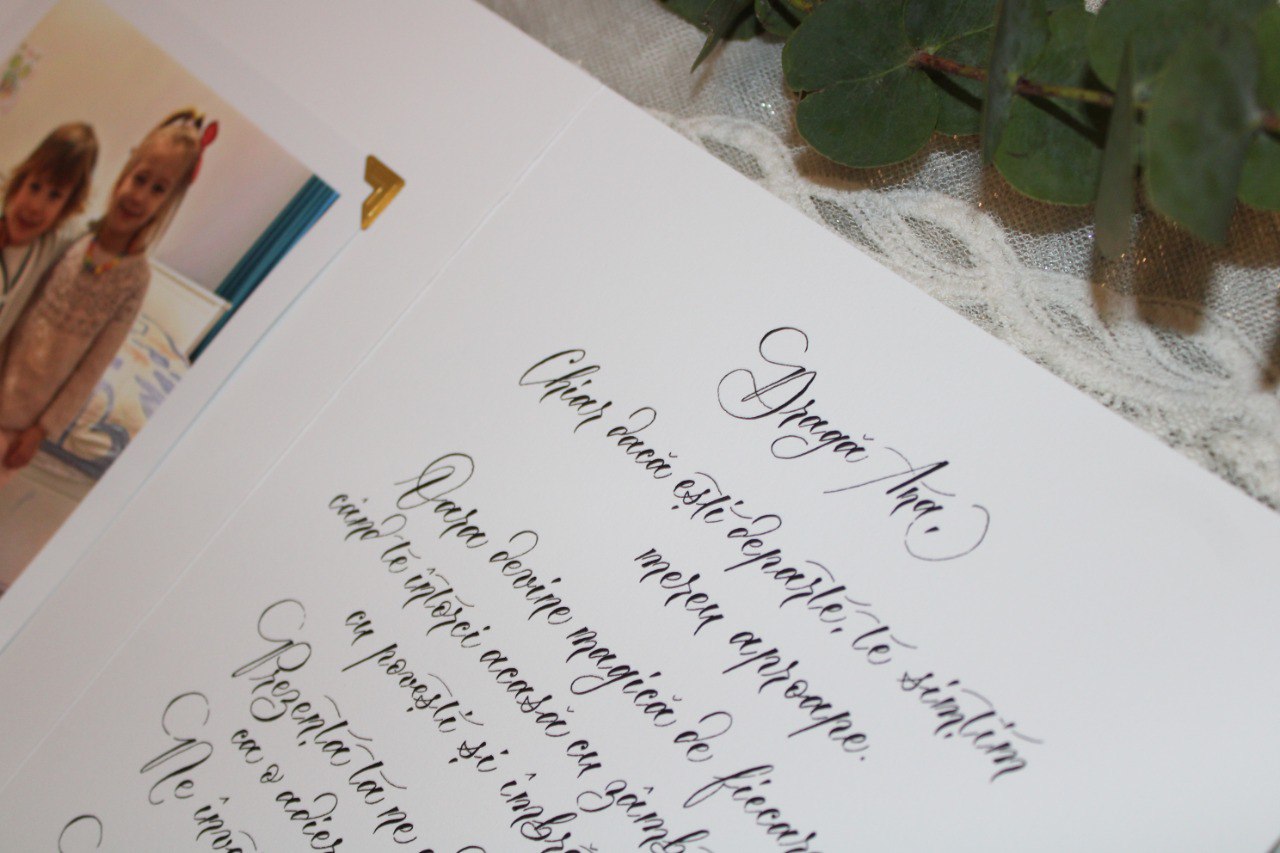 Dragă Ana,
Chiar dacă ești departe, te simțim
mereu aproape.
Vara devine magică de fiecare
când te întorci acasă cu
cu povești și
Prezența ta ne
ca o
Ne